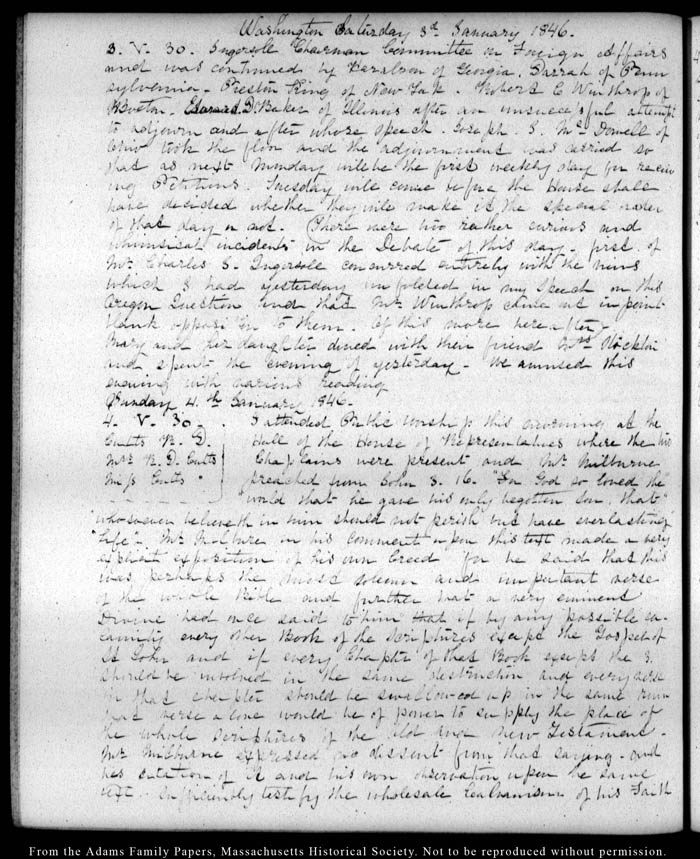 Washington Saturday 3d. January 1846.
3. V. 30. Ingersoll Chairman Committee on Foreign Affairs
and was continued by Haralson of Georgia. Darrah of Penn
sylvania - Preston King of New York. Robert C Winthrop of
Boston. Edward D. Baker of Illinois after an unsuccessful attempt
to adjourn and after whose speech. Joseph. J. Mc. Dowell of
Ohio took the floor and the adjournment was carried so
that as next Monday will be the first weekly day for receiv
ing Petitions. Tuesday will come before the House shall
have decided whether they will make it the special order
of that day or not. There were two rather curious and
whimsical incidents in the Debate of this day - first. of
Mr. Charles J. Ingersoll concurred entirely with the views
which I had yesterday unfolded in my Speech on this
Oregon Question and that Mr Winthrop came out in point
blank opposition to them. Of this more hereafter.
Mary and her daughter dined with their friend Mrs Stockton
and spent the evening of yesterday - We amused this
evening with various reading
Sunday 4. th January 1846.
4. V. 30. I attended Public worship this morning at the
Cutts R. D. Hall of the House of Representatives where the two
Mrs R. D. Cutts Chaplains were present and Mr Milburne
Miss Cutts preached from John 3. 16. "For God so loved the
"world that he gave his only begotten Son, that"
"whosoever believeth in him should not perish but have everlasting
"Life". Mr Milburne in his Comment upon this text made a very
explicit exposition of his own Creed for he said that this
was perhaps the most solemn and important verse
of the whole Bible and further that a very eminent
Divine had once said to him that if by any possible ca-
lamity every other Book of the Scriptures except the Gospel of
St John and if every Chapter of that Book except the 3.
should be involved in the same destruction and every verse
in that chapter should be swallowed up in the same ruin
that verse alone would be of power to supply the place of
the whole Scriptures of the Old and New Testament.
Mr Milburne expressed no dissent from that saying - and
his citation of it and his own observation upon the same
text - sufficiently testify the wholesale of his Faith
From the Adams Family Papers, Massachusetts Historical Society. Not to be reproduced without permission.